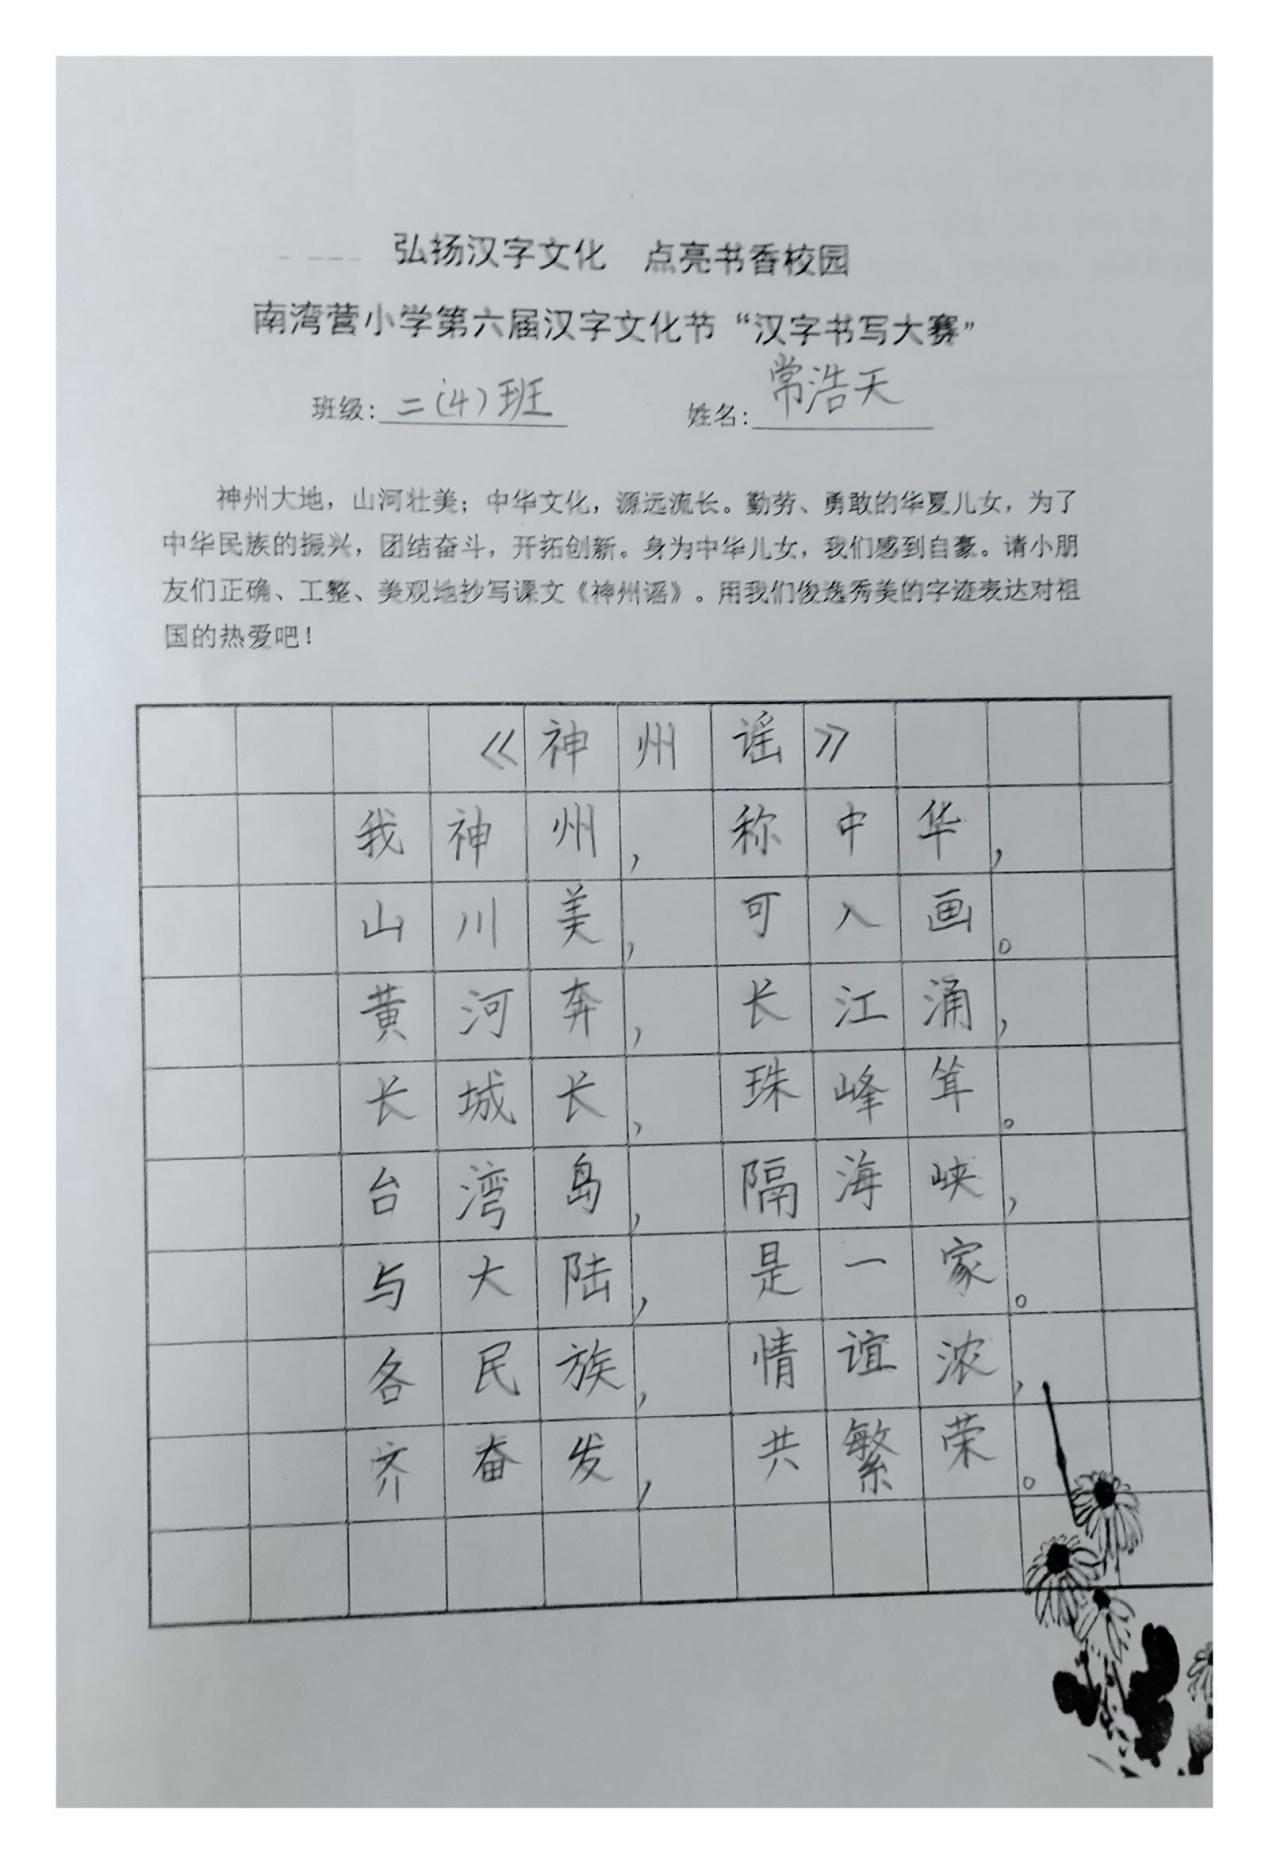 弘扬汉字文化 点亮书香校园
南湾营小学第六届汉字文化节“汉字书写大赛”
班级:二(4)班 姓名:常浩天
神州大地，山河壮美；中华文化，源远流长。勤劳、勇敢的华夏儿女，为了
中华民族的振兴，团结奋斗，开拓创新。身为中华儿女，我们感到自豪。请小朋
友们正确、工整、美观地抄写课文《神州谣》。用我们俊逸秀美的字迹表达对祖
国的热爱吧！
《神州谣》
我神州，称中华，
山川美，可入画。
黄河奔，长江涌，
长城长，珠峰耸。
台湾岛，隔海峡，
与大陆，是一家。
各民族，情谊浓，
齐奋发，共繁荣。